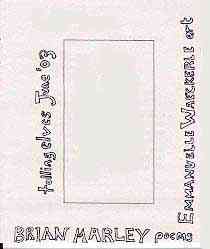 falling elves June '03
EMMANUELLE WAECKERLE art
BRIAN MARLEY poems